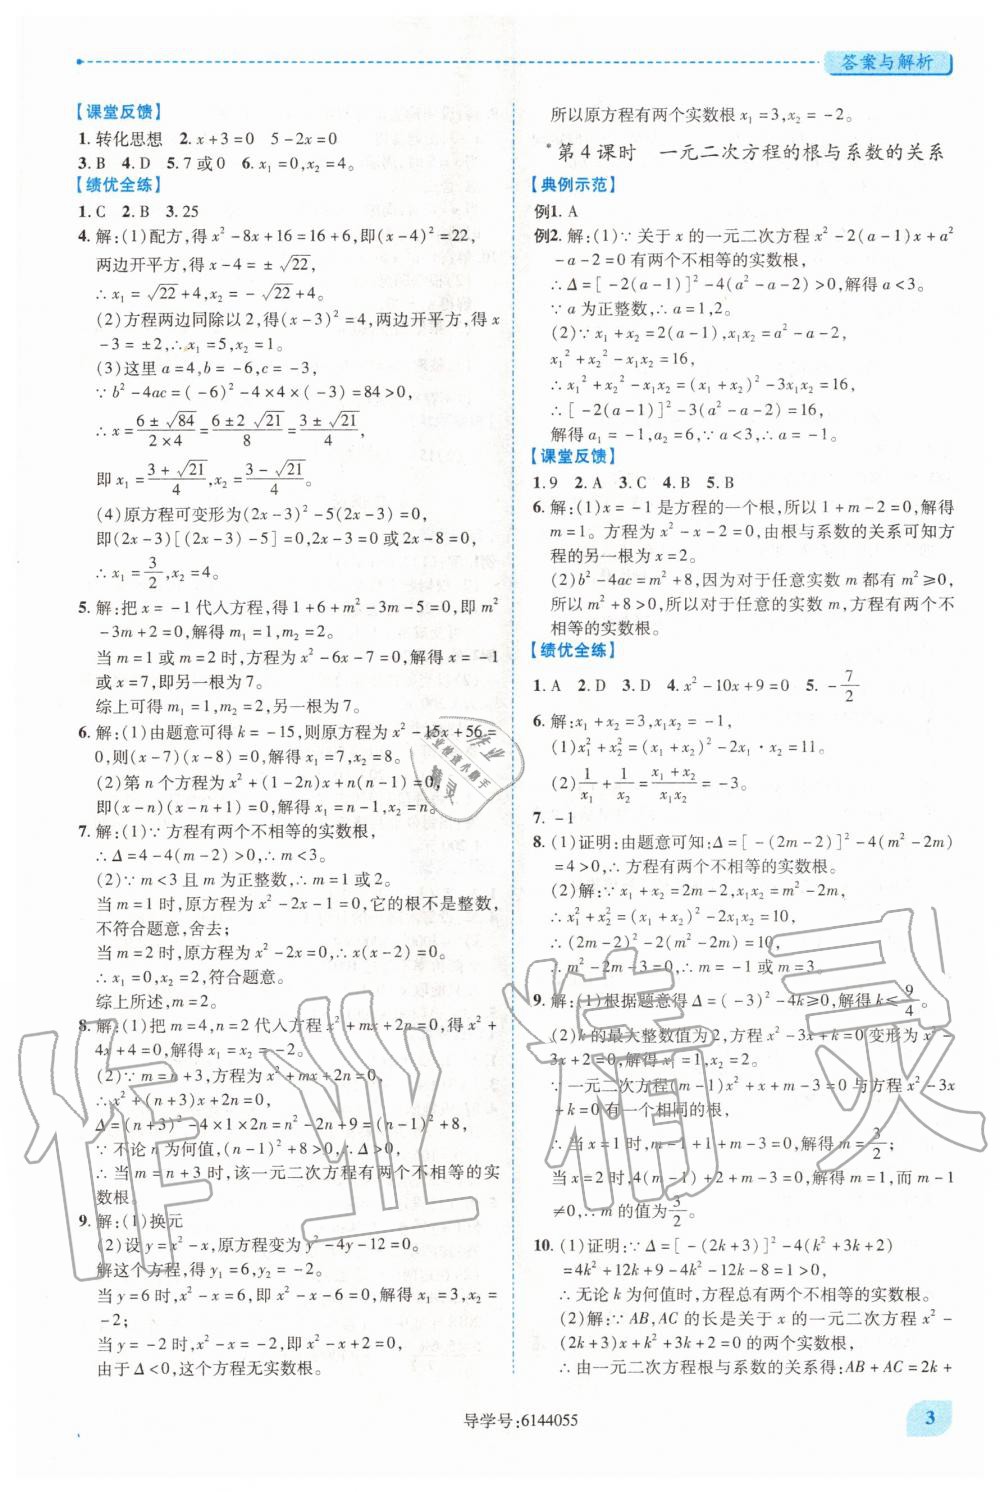 答案与解析
【课堂反馈】
1. 转化思想 2. x+3=0 5-2x=0
3. B 4. D 5. 7 或 0 6. x₁=0,x₂=4。
【绩优全练】
1. C 2. B 3. 25
4. 解:(1)配方,得 x²-8x+16=16+6,即(x-4)²=22,
两边开平方,得 x-4=±√22,
∴x₁=√22+4,x₂=-√22+4。
(2)方程两边同除以 2,得(x-3)²=4,两边开平方,得 x
-3=±2,∴x₁=5,x₂=1。
(3)这里 a=4,b=-6,c=-3,
∵b²-4ac=(-6)²-4×4×(-3)=84>0,
∴x=(6±√84)/(2×4)=(6±2√21)/8=(3±√21)/4,
即 x₁=(3+√21)/4,x₂=(3-√21)/4。
(4)原方程可变形为(2x-3)²-5(2x-3)=0,
即(2x-3)[(2x-3)-5]=0,2x-3=0 或 2x-8=0,
∴x₁=3/2,x₂=4。
5. 解:把 x=-1 代入方程,得 1+6+m²-3m-5=0,即 m²
-3m+2=0,解得 m₁=1,m₂=2。
当 m=1 或 m=2 时,方程为 x²-6x-7=0,解得 x=-1
或 x=7,即另一根为 7。
综上可得 m₁=1,m₂=2,另一根为 7。
6. 解:(1)由题意可得 k=-15,则原方程为 x²-15x+56=
0,则(x-7)(x-8)=0,解得 x₁=7,x₂=8。
(2)第 n 个方程为 x²+(1-2n)x+n(n-1)=0,
即(x-n)(x-n+1)=0,解得 x₁=n-1,x₂=n。
7. 解:(1)∵方程有两个不相等的实数根,
∴Δ=4-4(m-2)>0,∴m<3。
(2)∵m<3 且 m 为正整数,∴m=1 或 2。
当 m=1 时,原方程为 x²-2x-1=0,它的根不是整数,
不符合题意,舍去;
当 m=2 时,原方程为 x²-2x=0,∴x(x-2)=0,
∴x₁=0,x₂=2,符合题意。
综上所述,m=2。
8. 解:(1)把 m=4,n=2 代入方程 x²+mx+2n=0,得 x²+
4x+4=0,解得 x₁=x₂=-2。
(2)∵m=n+3,方程为 x²+mx+2n=0,
∴x²+(n+3)x+2n=0,
Δ=(n+3)²-4×1×2n=n²-2n+9=(n-1)²+8,
∵不论 n 为何值,(n-1)²+8>0,∴Δ>0,
∴当 m=n+3 时,该一元二次方程有两个不相等的实
数根。
9. 解:(1)换元
(2)设 y=x²-x,原方程变为 y²-4y-12=0,
解这个方程,得 y₁=6,y₂=-2。
当 y=6 时,x²-x=6,即 x²-x-6=0,解得 x₁=3,x₂=
-2;
当 y=-2 时,x²-x=-2,即 x²-x+2=0,
由于 Δ<0,这个方程无实数根。
所以原方程有两个实数根 x₁=3,x₂=-2。
*第 4 课时 一元二次方程的根与系数的关系
【典例示范】
例1. A
例2. 解:(1)∵关于 x 的一元二次方程 x²-2(a-1)x+a²
-a-2=0 有两个不相等的实数根,
∴Δ=[-2(a-1)]²-4(a²-a-2)>0,解得 a<3。
∵a 为正整数,∴a=1,2。
(2)∵x₁+x₂=2(a-1),x₁x₂=a²-a-2,
x₁²+x₂²-x₁x₂=16,
∴x₁²+x₂²-x₁x₂=(x₁+x₂)²-3x₁x₂=16,
∴[-2(a-1)]²-3(a²-a-2)=16,
解得 a₁=-1,a₂=6,∵a<3,∴a=-1。
【课堂反馈】
1. 9 2. A 3. C 4. B 5. B
6. 解:(1)x=-1 是方程的一个根,所以 1+m-2=0,解得
m=1。方程为 x²-x-2=0,由根与系数的关系可知方
程的另一根为 x=2。
(2)b²-4ac=m²+8,因为对于任意实数 m 都有 m²≥0,
所以 m²+8>0,所以对于任意的实数 m,方程有两个不
相等的实数根。
【绩优全练】
1. A 2. D 3. D 4. x²-10x+9=0 5. -7/2
6. 解:x₁+x₂=3,x₁x₂=-1,
(1)x₁²+x₂²=(x₁+x₂)²-2x₁·x₂=11。
(2)1/x₁+1/x₂=(x₁+x₂)/(x₁x₂)=-3。
7. -1
8. (1)证明:由题意可知:Δ=[-(2m-2)]²-4(m²-2m)
=4>0,∴方程有两个不相等的实数根。
(2)解:∵x₁+x₂=2m-2,x₁x₂=m²-2m,
∴x₁²+x₂²=(x₁+x₂)²-2x₁x₂=10,
∴(2m-2)²-2(m²-2m)=10,
∴m²-2m-3=0,∴m=-1 或 m=3。
9. 解:(1)根据题意得 Δ=(-3)²-4k≥0,解得 k≤9/4。
(2)k 的最大整数值为 2,方程 x²-3x+k=0 变形为 x²-
3x+2=0,解得 x₁=1,x₂=2,
∵一元二次方程(m-1)x²+x+m-3=0 与方程 x²-3x
+k=0 有一个相同的根,
∴当 x=1 时,m-1+1+m-3=0,解得 m=3/2;
当 x=2 时,4(m-1)+2+m-3=0,解得 m=1,而 m-1
≠0,∴m 的值为 3/2。
10. (1)证明:∵Δ=[-(2k+3)]²-4(k²+3k+2)
=4k²+12k+9-4k²-12k-8=1>0,
∴无论 k 为何值时,方程总有两个不相等的实数根。
(2)解:∵AB,AC 的长是关于 x 的一元二次方程 x²-
(2k+3)x+k²+3k+2=0 的两个实数根,
∴由一元二次方程根与系数的关系得:AB+AC=2k+
导学号:6144055
3
作业精灵
作业检查小助手
作业精灵